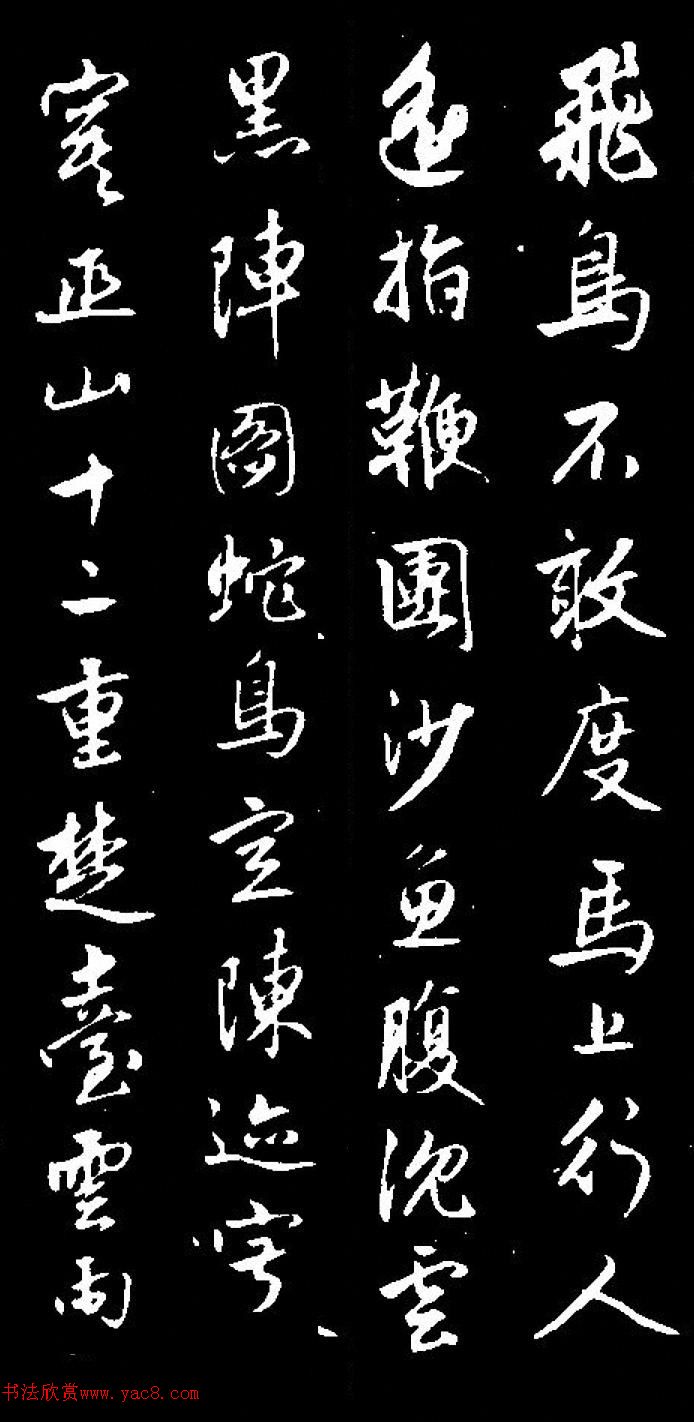 飛鳥不敢度馬上行人
遥指鞭團沙魚腹沈雲
黑陣圖蛇鳥空陳迹
巫山十二重楚臺雲雨
书法欣赏www.yac8.com